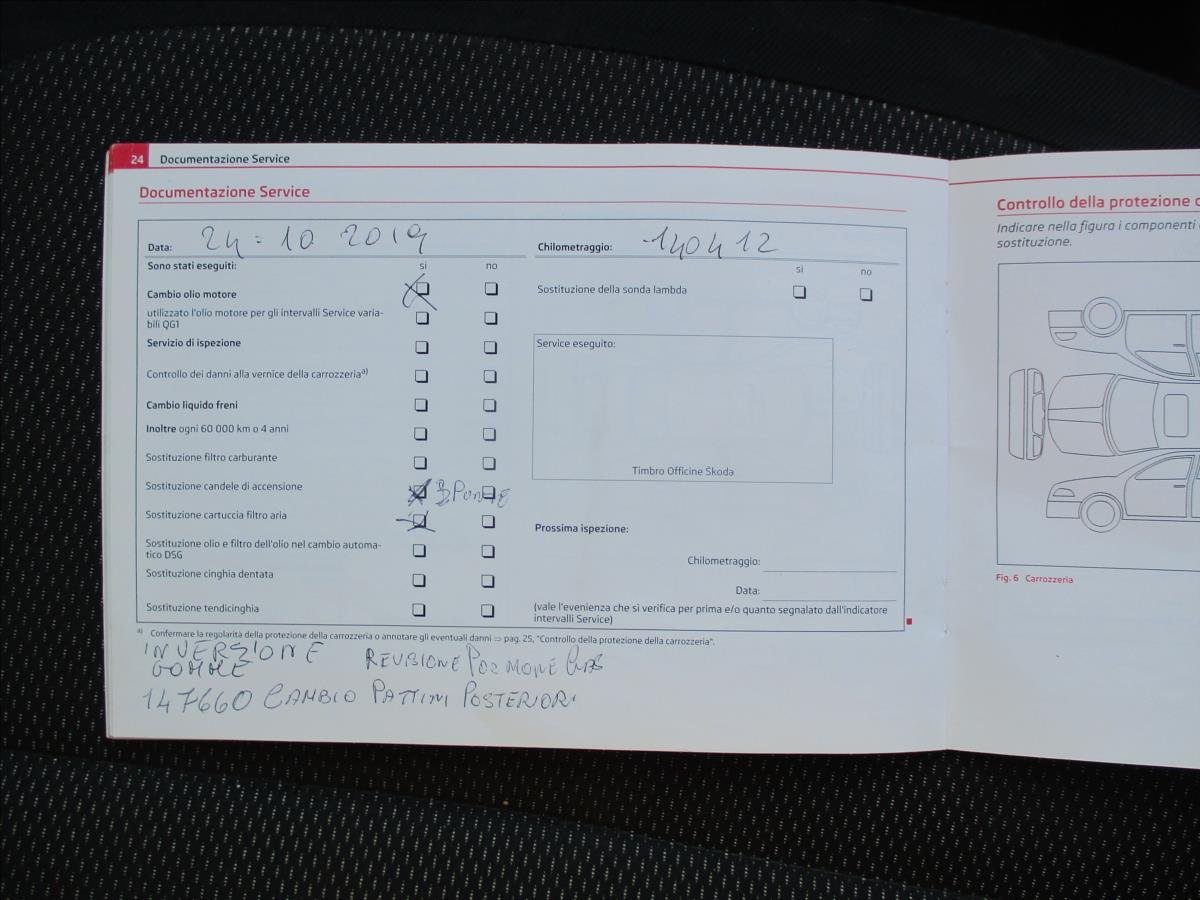 24 Documentazione Service
Documentazione Service
Data: 24 = 10 2019
Chilometraggio: 140412
Sono stati eseguiti: si no
si no
Cambio olio motore
Sostituzione della sonda lambda
utilizzato l'olio motore per gli intervalli Service varia-
bili QG1
Servizio di ispezione
Service eseguito:
Controllo dei danni alla vernice della carrozzeriaᵃ⁾
Cambio liquido freni
Inoltre ogni 60 000 km o 4 anni
Sostituzione filtro carburante
Timbro Officine Skoda
Sostituzione candele di accensione
Sostituzione cartuccia filtro aria
Prossima ispezione:
Sostituzione olio e filtro dell'olio nel cambio automa-
tico DSG
Chilometraggio:
Sostituzione cinghia dentata
Data:
Sostituzione tendicinghia
(vale l'evenienza che si verifica per prima e/o quanto segnalato dall'indicatore
intervalli Service)
ᵃ⁾ Confermare la regolarità della protezione della carrozzeria o annotare gli eventuali danni ⇒ pag. 25, "Controllo della protezione della carrozzeria".
INVERZIONE
GOMME
REVISIONE POLMONE GAS
147660 CAMBIO PATTINI POSTERIORI
Controllo della protezione
Indicare nella figura i componenti
sostituzione.
Fig. 6 Carrozzeria